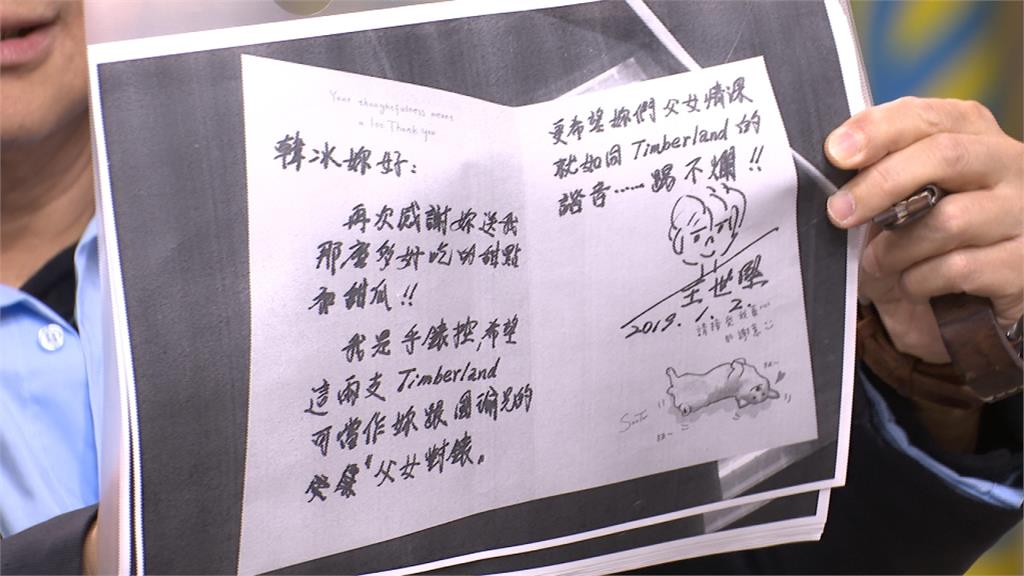 Your thoughtfulness means
a lot Thank you
韓冰妳好：
再次感謝妳送我
那麼多好吃的甜點
和甜瓜!!
我是手錶控,希望
這兩支 Timberland
可當作妳跟國瑜兄的
父女對錶。
更希望妳們父女情深
就如同 Timberland 的
諧音……踢不爛!!
王世堅
2019.1.2.
請接受我
的謝意